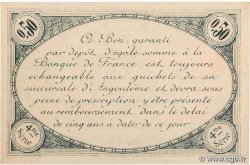 0,50
0,50
Ce Bon, garanti
par dépôt d'égale somme à la
Banque de France, est toujours
échangeable aux guichets de sa
succursale d'Angoulême et devra sous
peine de prescription y etre présenté
au remboursement, dans le délai
de cinq ans à dater de ce jour.
4ème Série
4ème Série